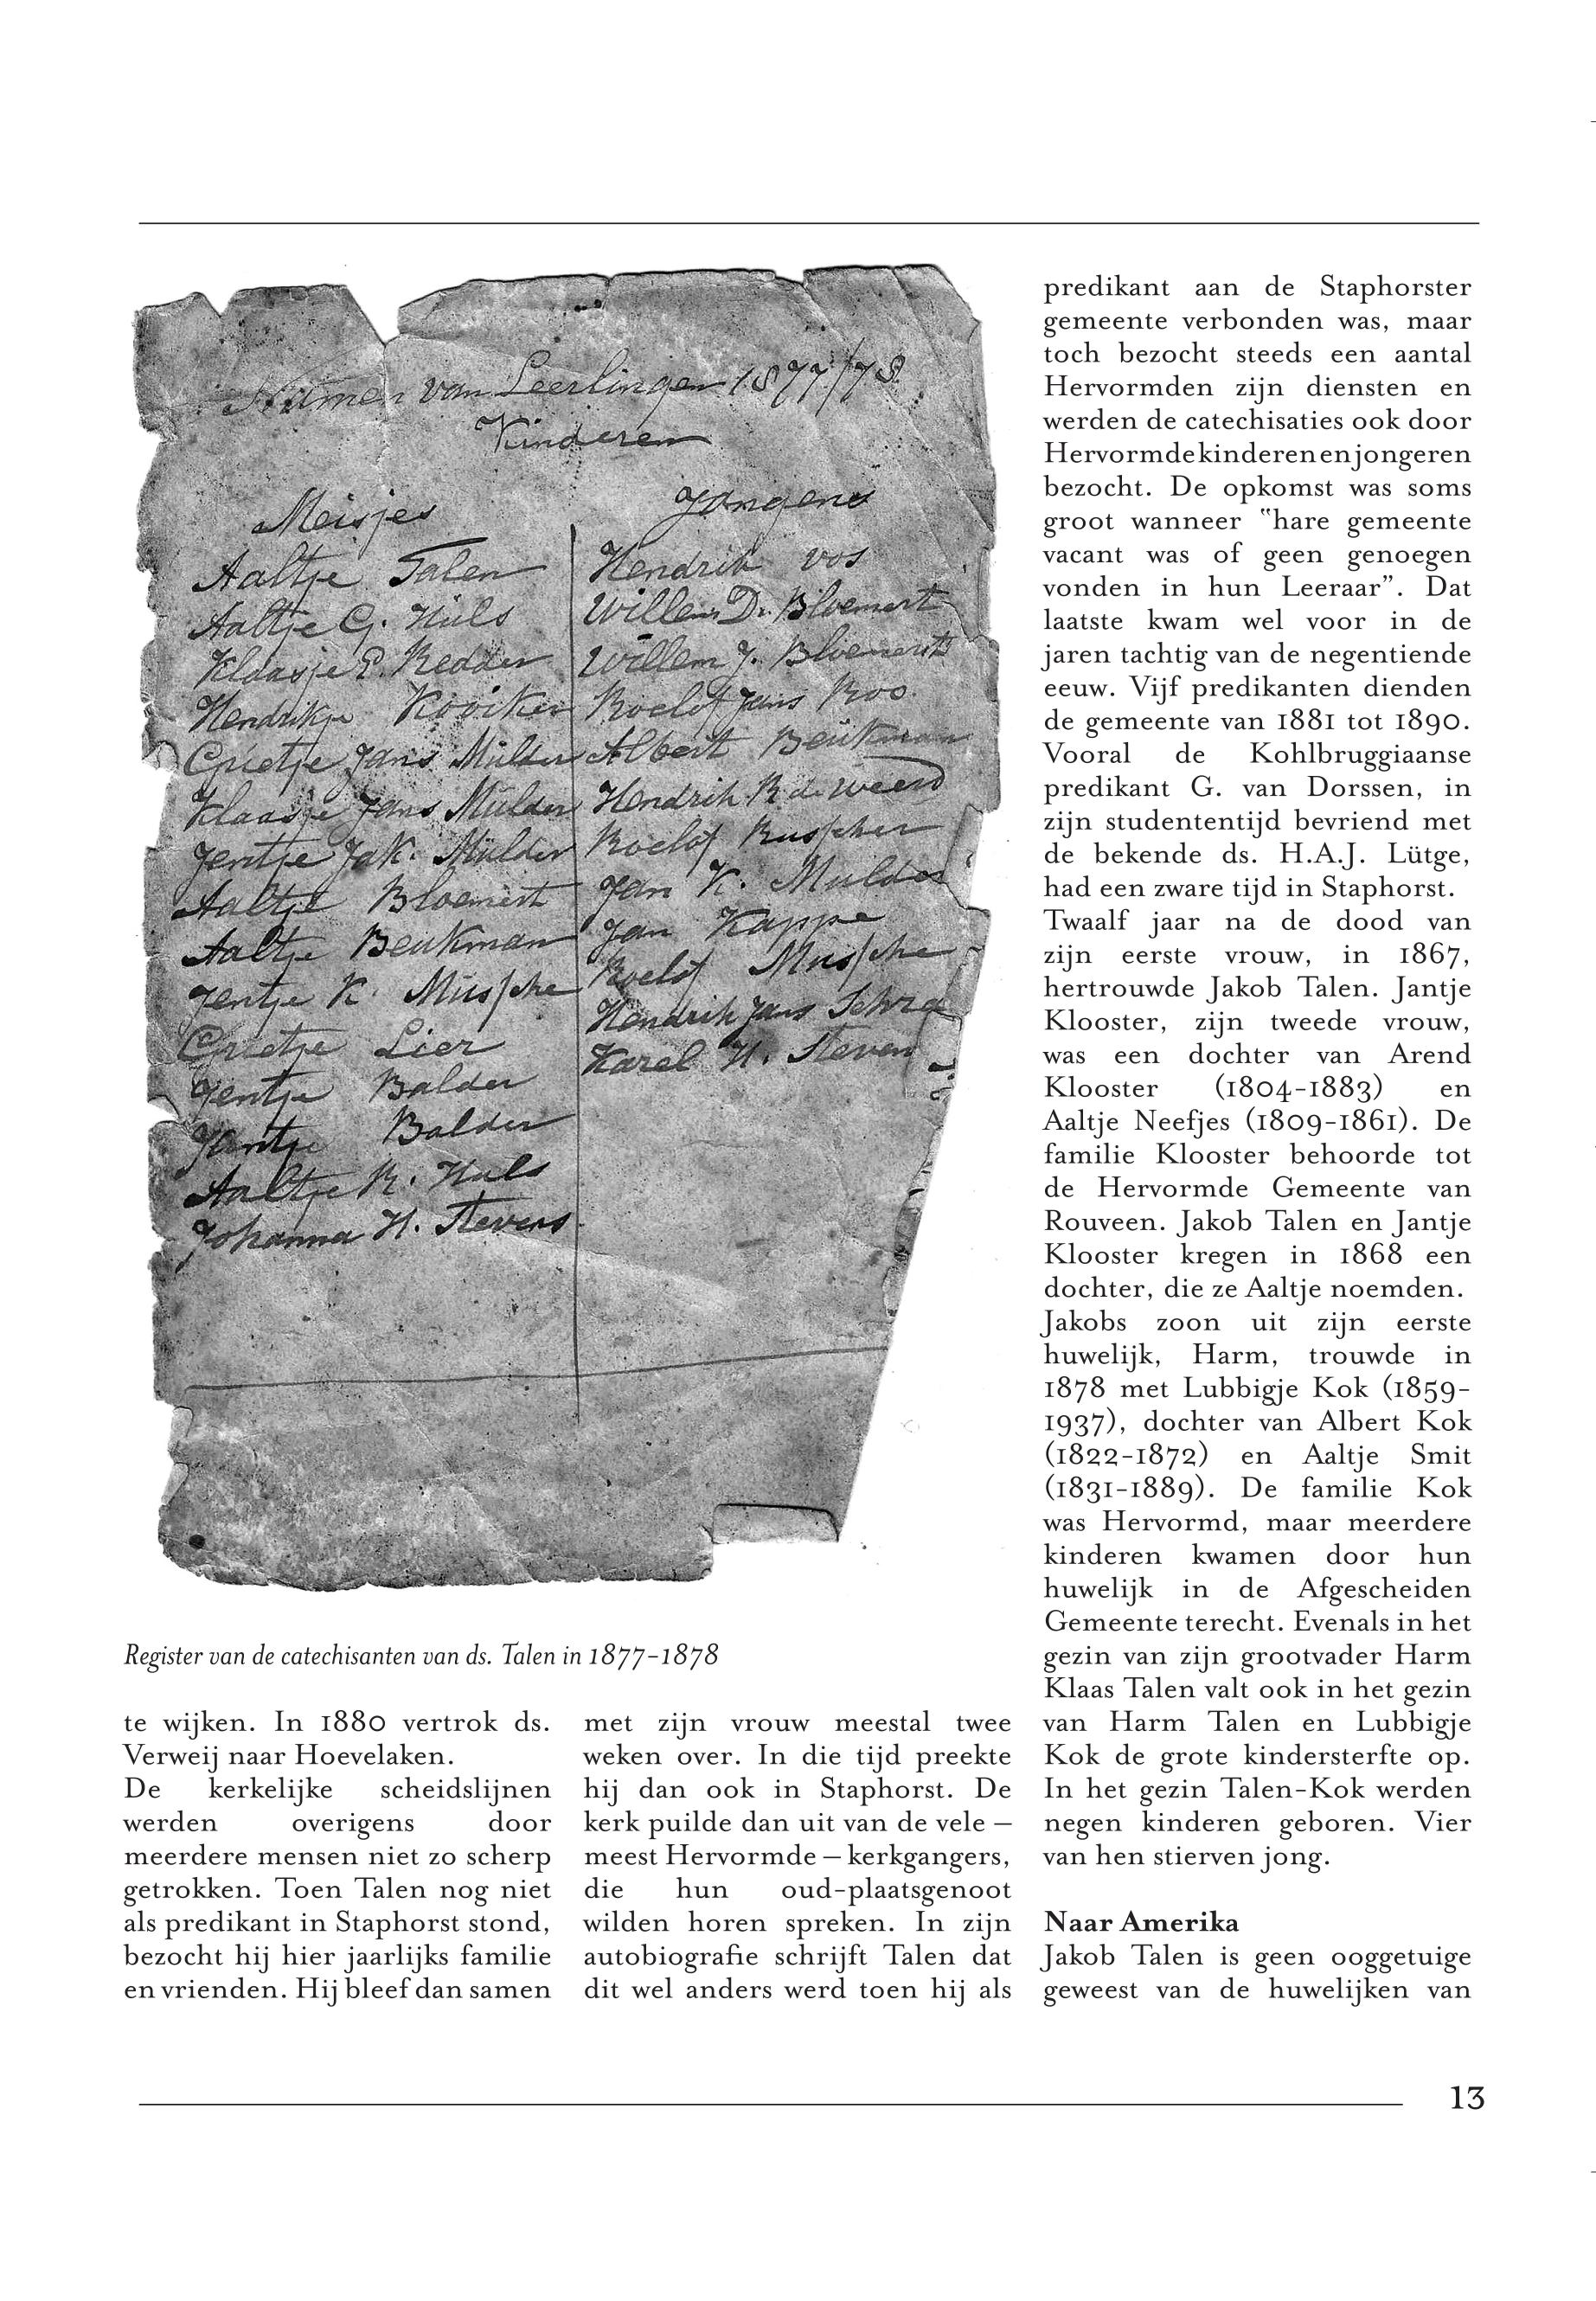 Namen van Leerlingen 1877/78.
Kinderen
Meisjes
Aaltje Talen
Aaltje G. Hüls
Klaasje E. Redder
Hendrikje Kooiker
Grietje Jans Mülder
Klaasje Jans Mülder
Jentje Jak. Mülder
Aaltje Bloemert
Aaltje Beukman
Jentje K. Müssche
Grietje Lier
Jentje Balder
Jantje Balder
Aaltje R. Huls
Johanna H. Stevens
Jongens
Hendrik vos
Willem D. Bloemert
Willem J. Bloemert
Roelof Jans Roo
Albert Beükman
Hendrik R de weerd
Roelof Russcher
Jan K. Mulder
Jan Kappe
Roelof Mussche
Hendrik Jans
Karel H. Steven
Register van de catechisanten van ds. Talen in 1877-1878
te wijken. In 1880 vertrok ds.
Verweij naar Hoevelaken.
De kerkelijke scheidslijnen
werden overigens door
meerdere mensen niet zo scherp
getrokken. Toen Talen nog niet
als predikant in Staphorst stond,
bezocht hij hier jaarlijks familie
en vrienden. Hij bleef dan samen
met zijn vrouw meestal twee
weken over. In die tijd preekte
hij dan ook in Staphorst. De
kerk puilde dan uit van de vele –
meest Hervormde – kerkgangers,
die hun oud-plaatsgenoot
wilden horen spreken. In zijn
autobiografie schrijft Talen dat
dit wel anders werd toen hij als
predikant aan de Staphorster
gemeente verbonden was, maar
toch bezocht steeds een aantal
Hervormden zijn diensten en
werden de catechisaties ook door
Hervormde kinderen en jongeren
bezocht. De opkomst was soms
groot wanneer "hare gemeente
vacant was of geen genoegen
vonden in hun Leeraar". Dat
laatste kwam wel voor in de
jaren tachtig van de negentiende
eeuw. Vijf predikanten dienden
de gemeente van 1881 tot 1890.
Vooral de Kohlbruggiaanse
predikant G. van Dorssen, in
zijn studententijd bevriend met
de bekende ds. H.A.J. Lütge,
had een zware tijd in Staphorst.
Twaalf jaar na de dood van
zijn eerste vrouw, in 1867,
hertrouwde Jakob Talen. Jantje
Klooster, zijn tweede vrouw,
was een dochter van Arend
Klooster (1804-1883) en
Aaltje Neefjes (1809-1861). De
familie Klooster behoorde tot
de Hervormde Gemeente van
Rouveen. Jakob Talen en Jantje
Klooster kregen in 1868 een
dochter, die ze Aaltje noemden.
Jakobs zoon uit zijn eerste
huwelijk, Harm, trouwde in
1878 met Lubbigje Kok (1859-
1937), dochter van Albert Kok
(1822-1872) en Aaltje Smit
(1831-1889). De familie Kok
was Hervormd, maar meerdere
kinderen kwamen door hun
huwelijk in de Afgescheiden
Gemeente terecht. Evenals in het
gezin van zijn grootvader Harm
Klaas Talen valt ook in het gezin
van Harm Talen en Lubbigje
Kok de grote kindersterfte op.
In het gezin Talen-Kok werden
negen kinderen geboren. Vier
van hen stierven jong.
Naar Amerika
Jakob Talen is geen ooggetuige
geweest van de huwelijken van
13